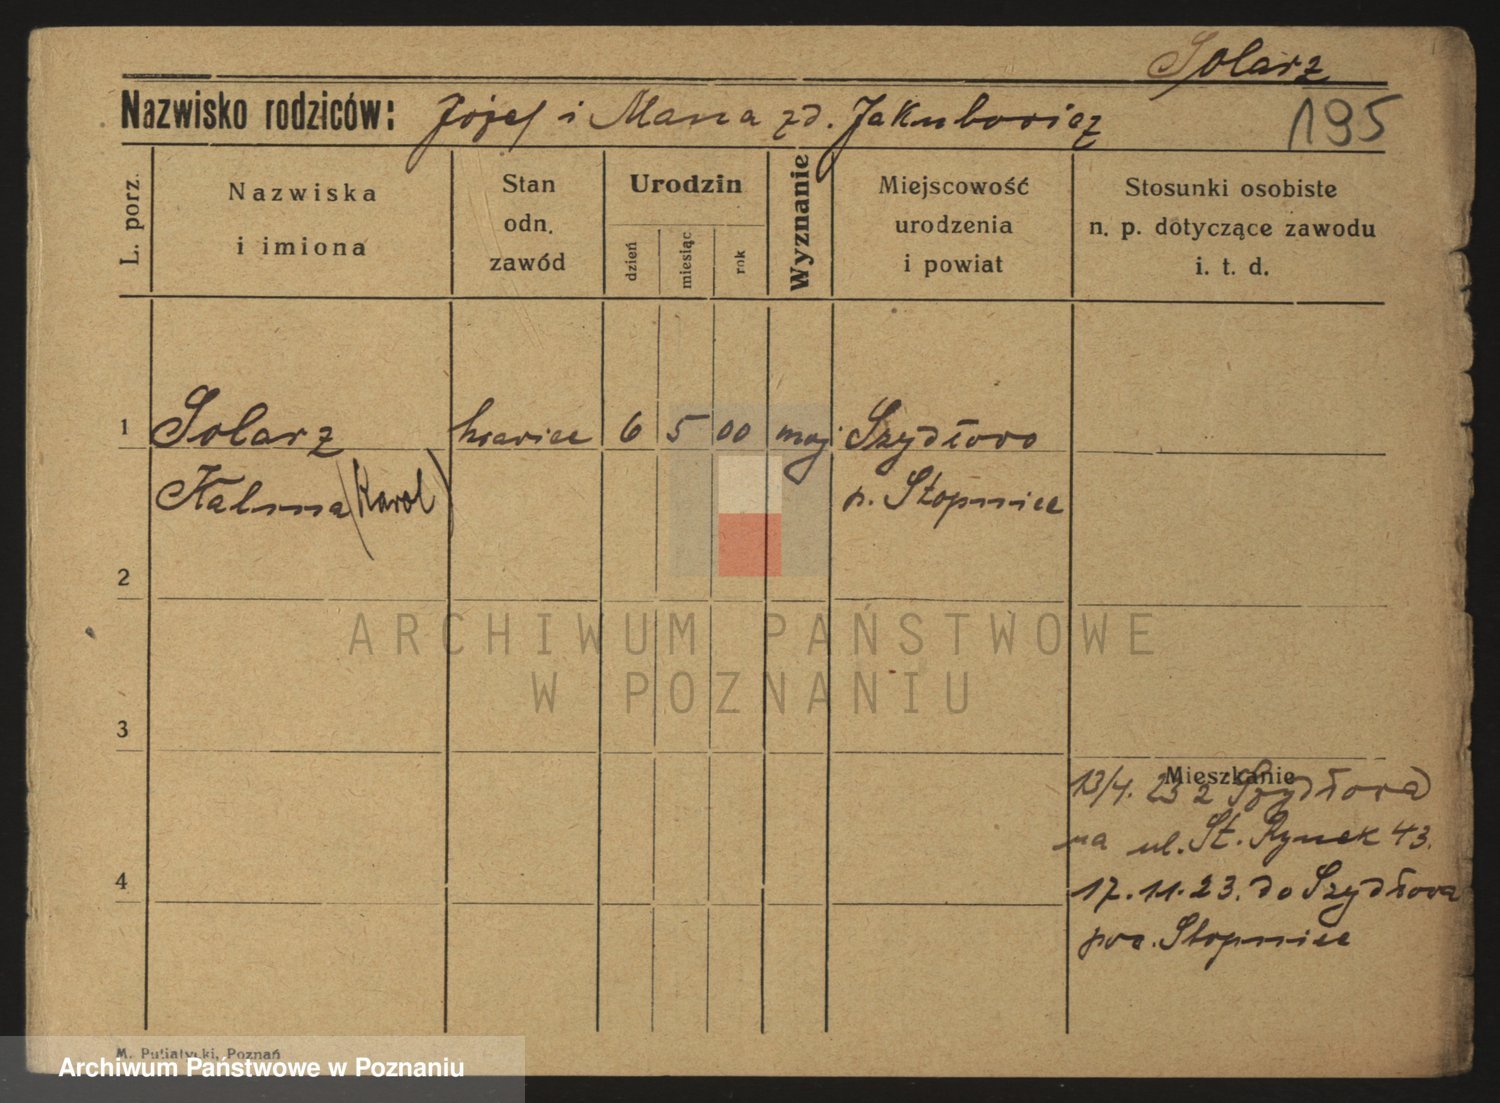 Solarz
Nazwisko rodziców: Józef i Maria zd. Jakubowicz
195
L. porz.
Nazwiska
i imiona
Stan
odn.
zawód
Urodzin
dzień
miesiąc
rok
Wyznanie
Miejscowość
urodzenia
i powiat
Stosunki osobiste
n. p. dotyczące zawodu
i. t. d.
1 Solarz krawiec 6 5 00 moj Szydłowo
Kalma (Karol) p. Stopnice
2
ARCHIWUM PAŃSTWOWE
W POZNANIU
3
Mieszkanie
13/4. 23 z Szydłowa
na ul. St. Rynek 43.
4
17.11.23. do Szydłowa
pow. Stopnice
M. Putiatycki, Poznań
Archiwum Państwowe w Poznaniu